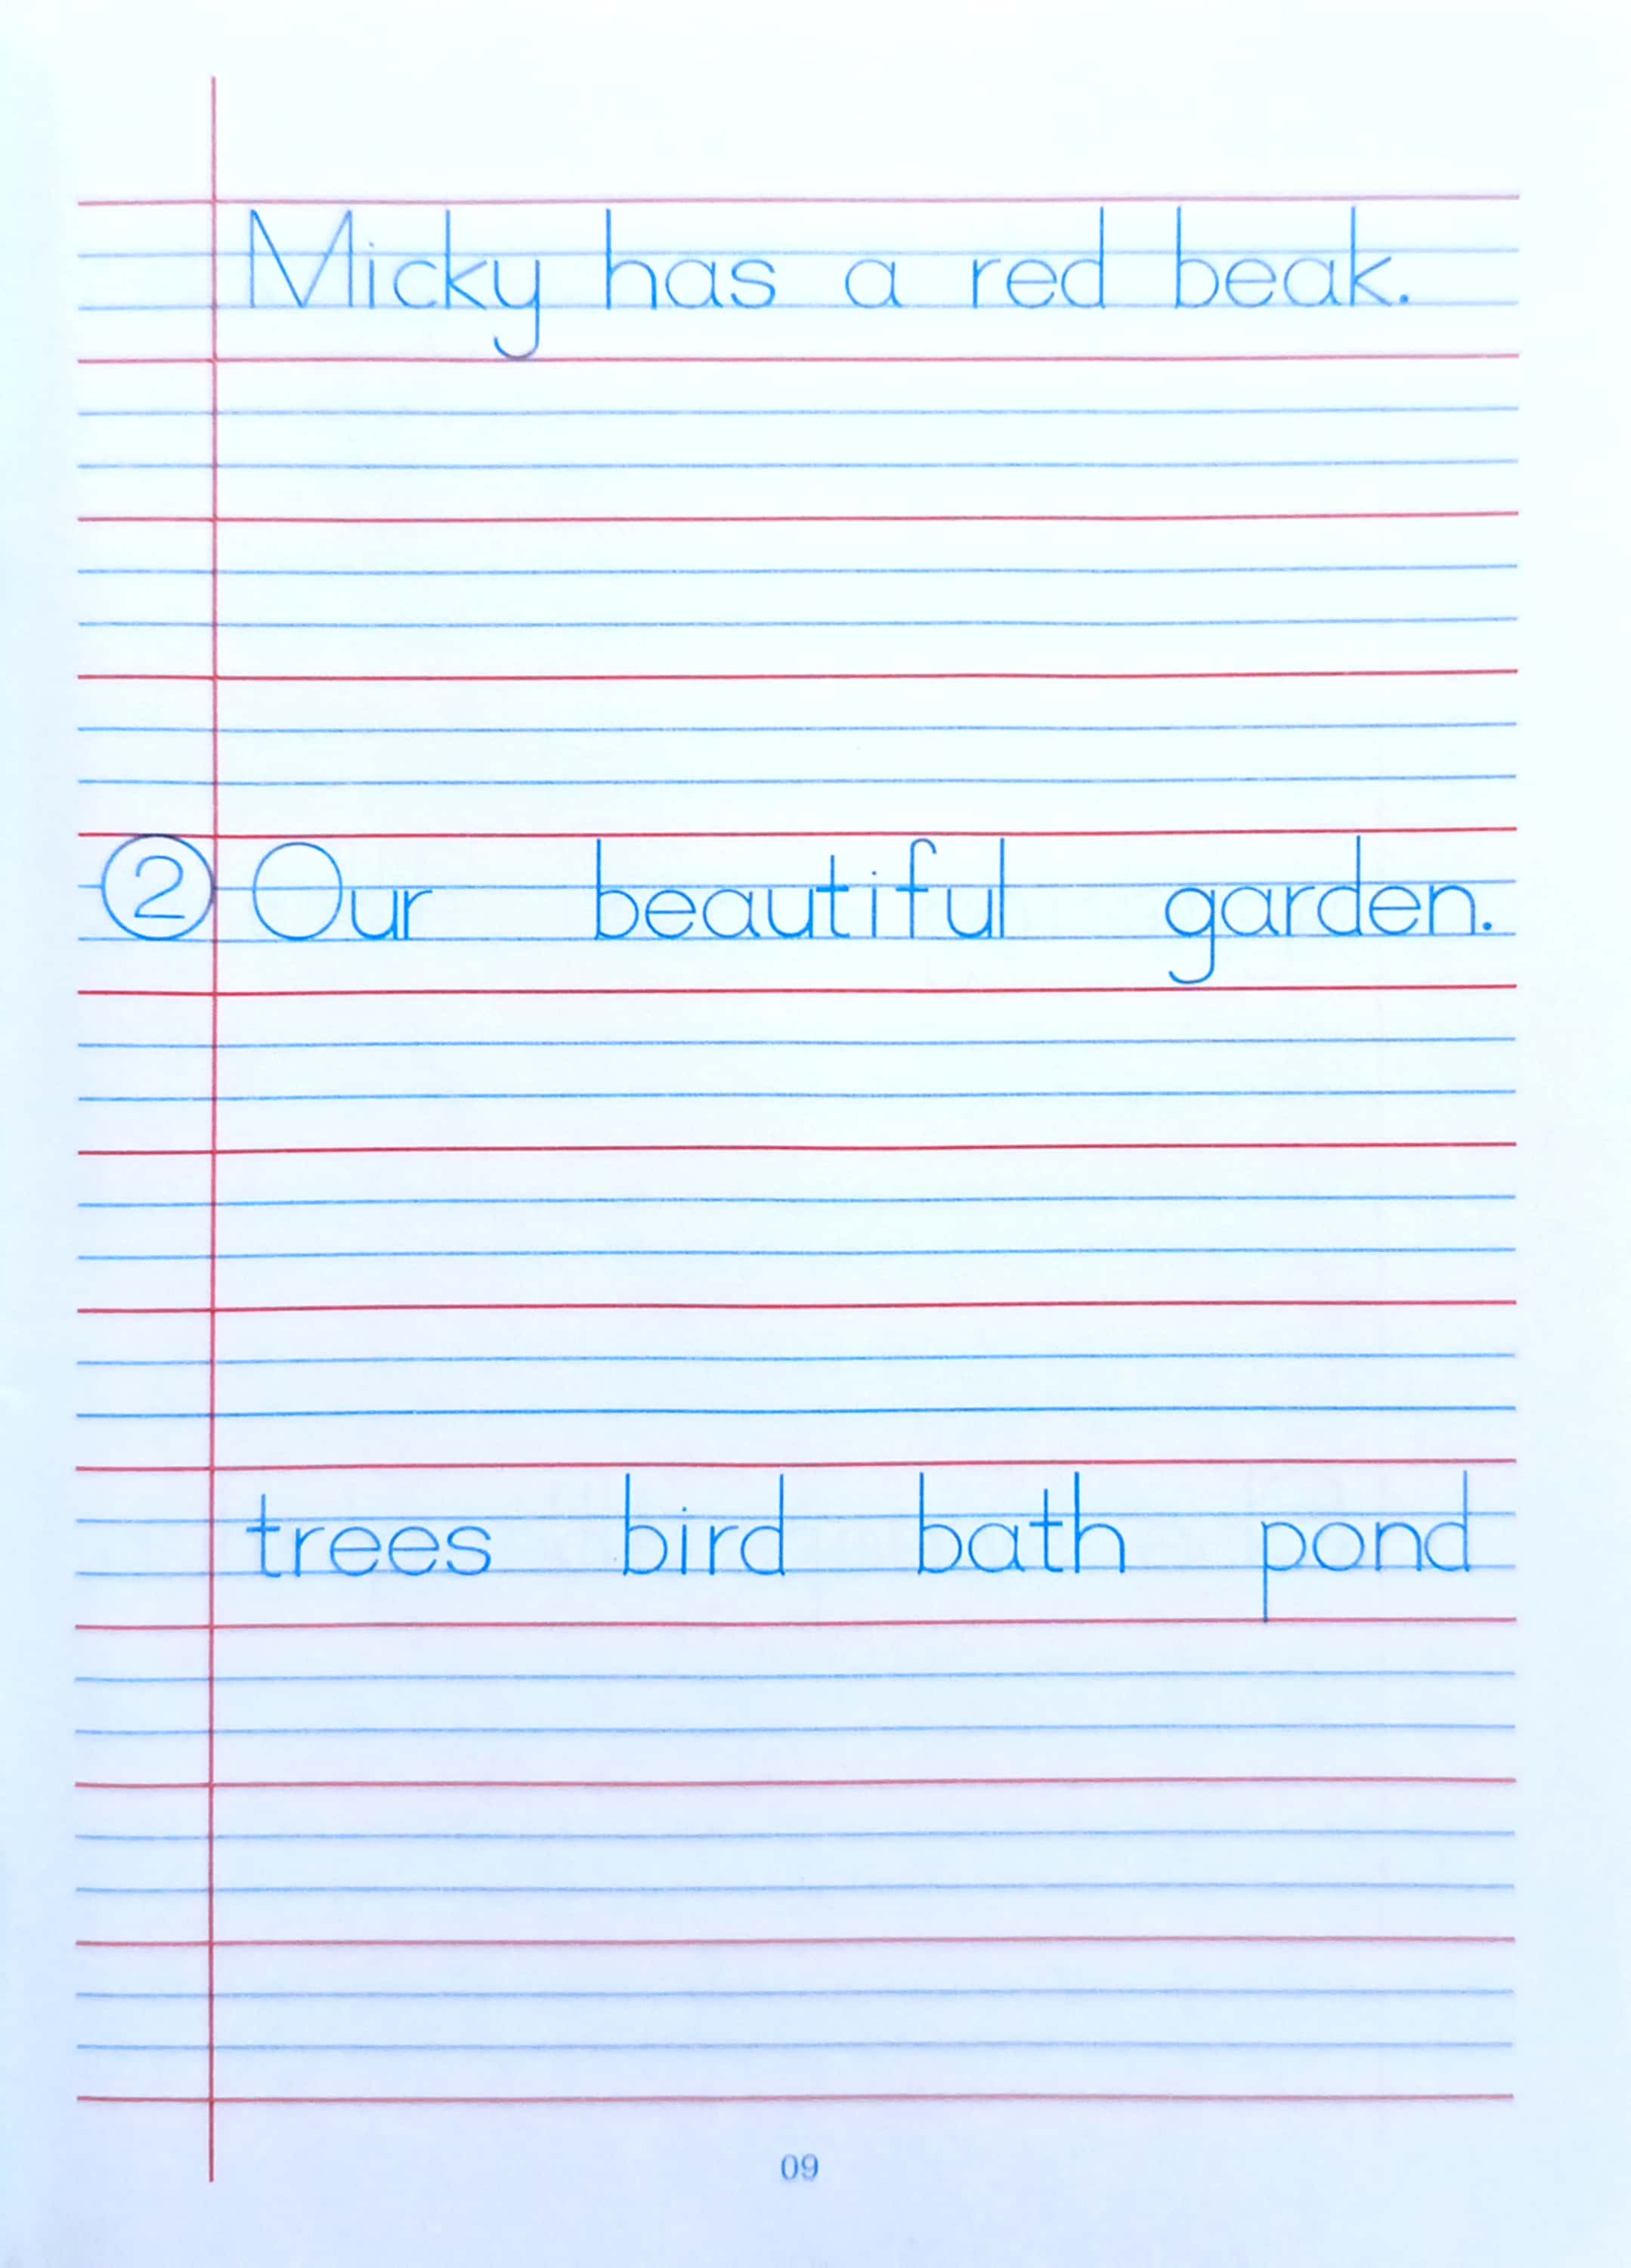 Micky has a red beak.
② Our beautiful garden.
trees bird bath pond
09